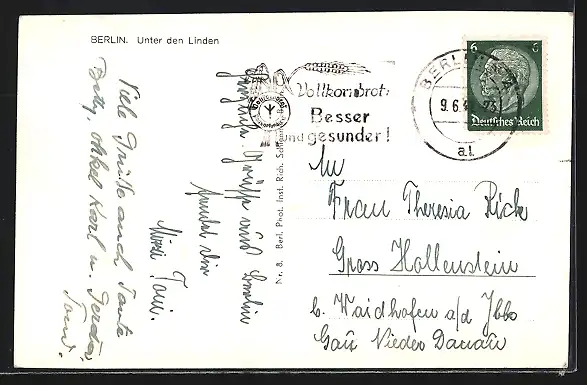 BERLIN. Unter den Linden
Vollkornbrot:
Besser
und gesunder!
BERLIN
9.6.4
a1
6 6
Deutsches Reich
An
Frau Theresia Rick
Gross Hollenstein
b. Waidhofen a/d Ybbs
Gau Nieder Donau
Herzliche Grüsse aus Berlin
sendet dir
Mizzi Toni.
Viele Grüße auch Tante
Betty, Onkel Karl u.
Nr. 8. Berl. Phot. Inst. Rich.